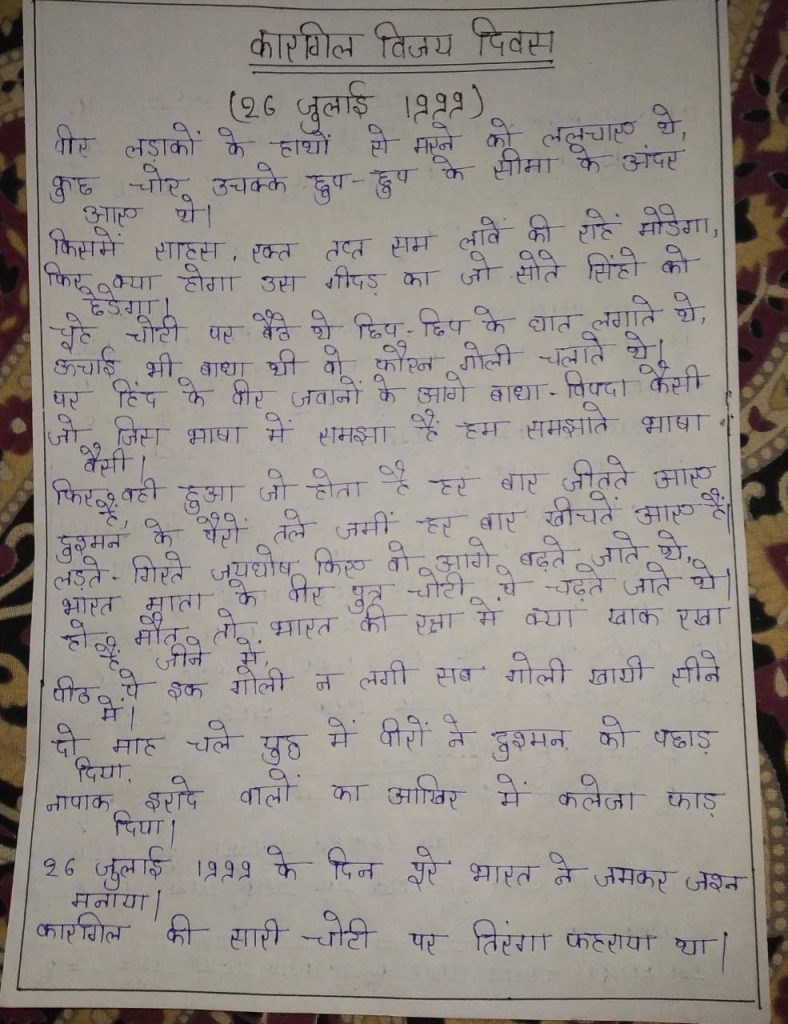 कारगिल विजय दिवस
(26 जुलाई 1999)
वीर लड़ाकों के हाथों से मरने को ललचाए थे,
कुछ चोर उचक्के छुप-छुप के सीमा के अंदर
आए थे।
किसमें साहस, रक्त तप्त सम लावें की राहें मोडेगा,
फिर क्या होगा उस गीदड़ का जो सोते सिंहो को
छेडेगा।
चोटी पर बैठे थे छिप-छिप के घात लगाते थे,
ऊचाई भी बाधा थी वो फौरन गोली चलाते थे।
पर हिंद के वीर जवानों के आगे बाधा-विपदा कैसी
जो जिस भाषा में समझा हैं हम समझाते भाषा
वैसी।
फिर वही हुआ जो होता है हर बार जीतते आए
हैं,
दुश्मन के पैरों तले जमीं हर बार खीचतें आए हैं।
लड़ते-गिरते जयघोष किए वो आगे बढ़ते जाते थे,
भारत माता के वीर पुत्र चोटी पे चढ़ते जाते थे।
हो मौत तो भारत की रक्षा में क्या खाक रखा
हैं जीने में,
पीठ पे इक गोली न लगी सब गोली खायी सीने
में।
दो माह चले युद्ध में वीरों ने दुश्मन को पछाड़
दिया,
नापाक इरादे वालों का आखिर में कलेजा फाड़
दिया।
26 जुलाई 1999 के दिन पूरे भारत ने जमकर जश्न
मनाया।
कारगिल की सारी चोटी पर तिरंगा फहराया था।